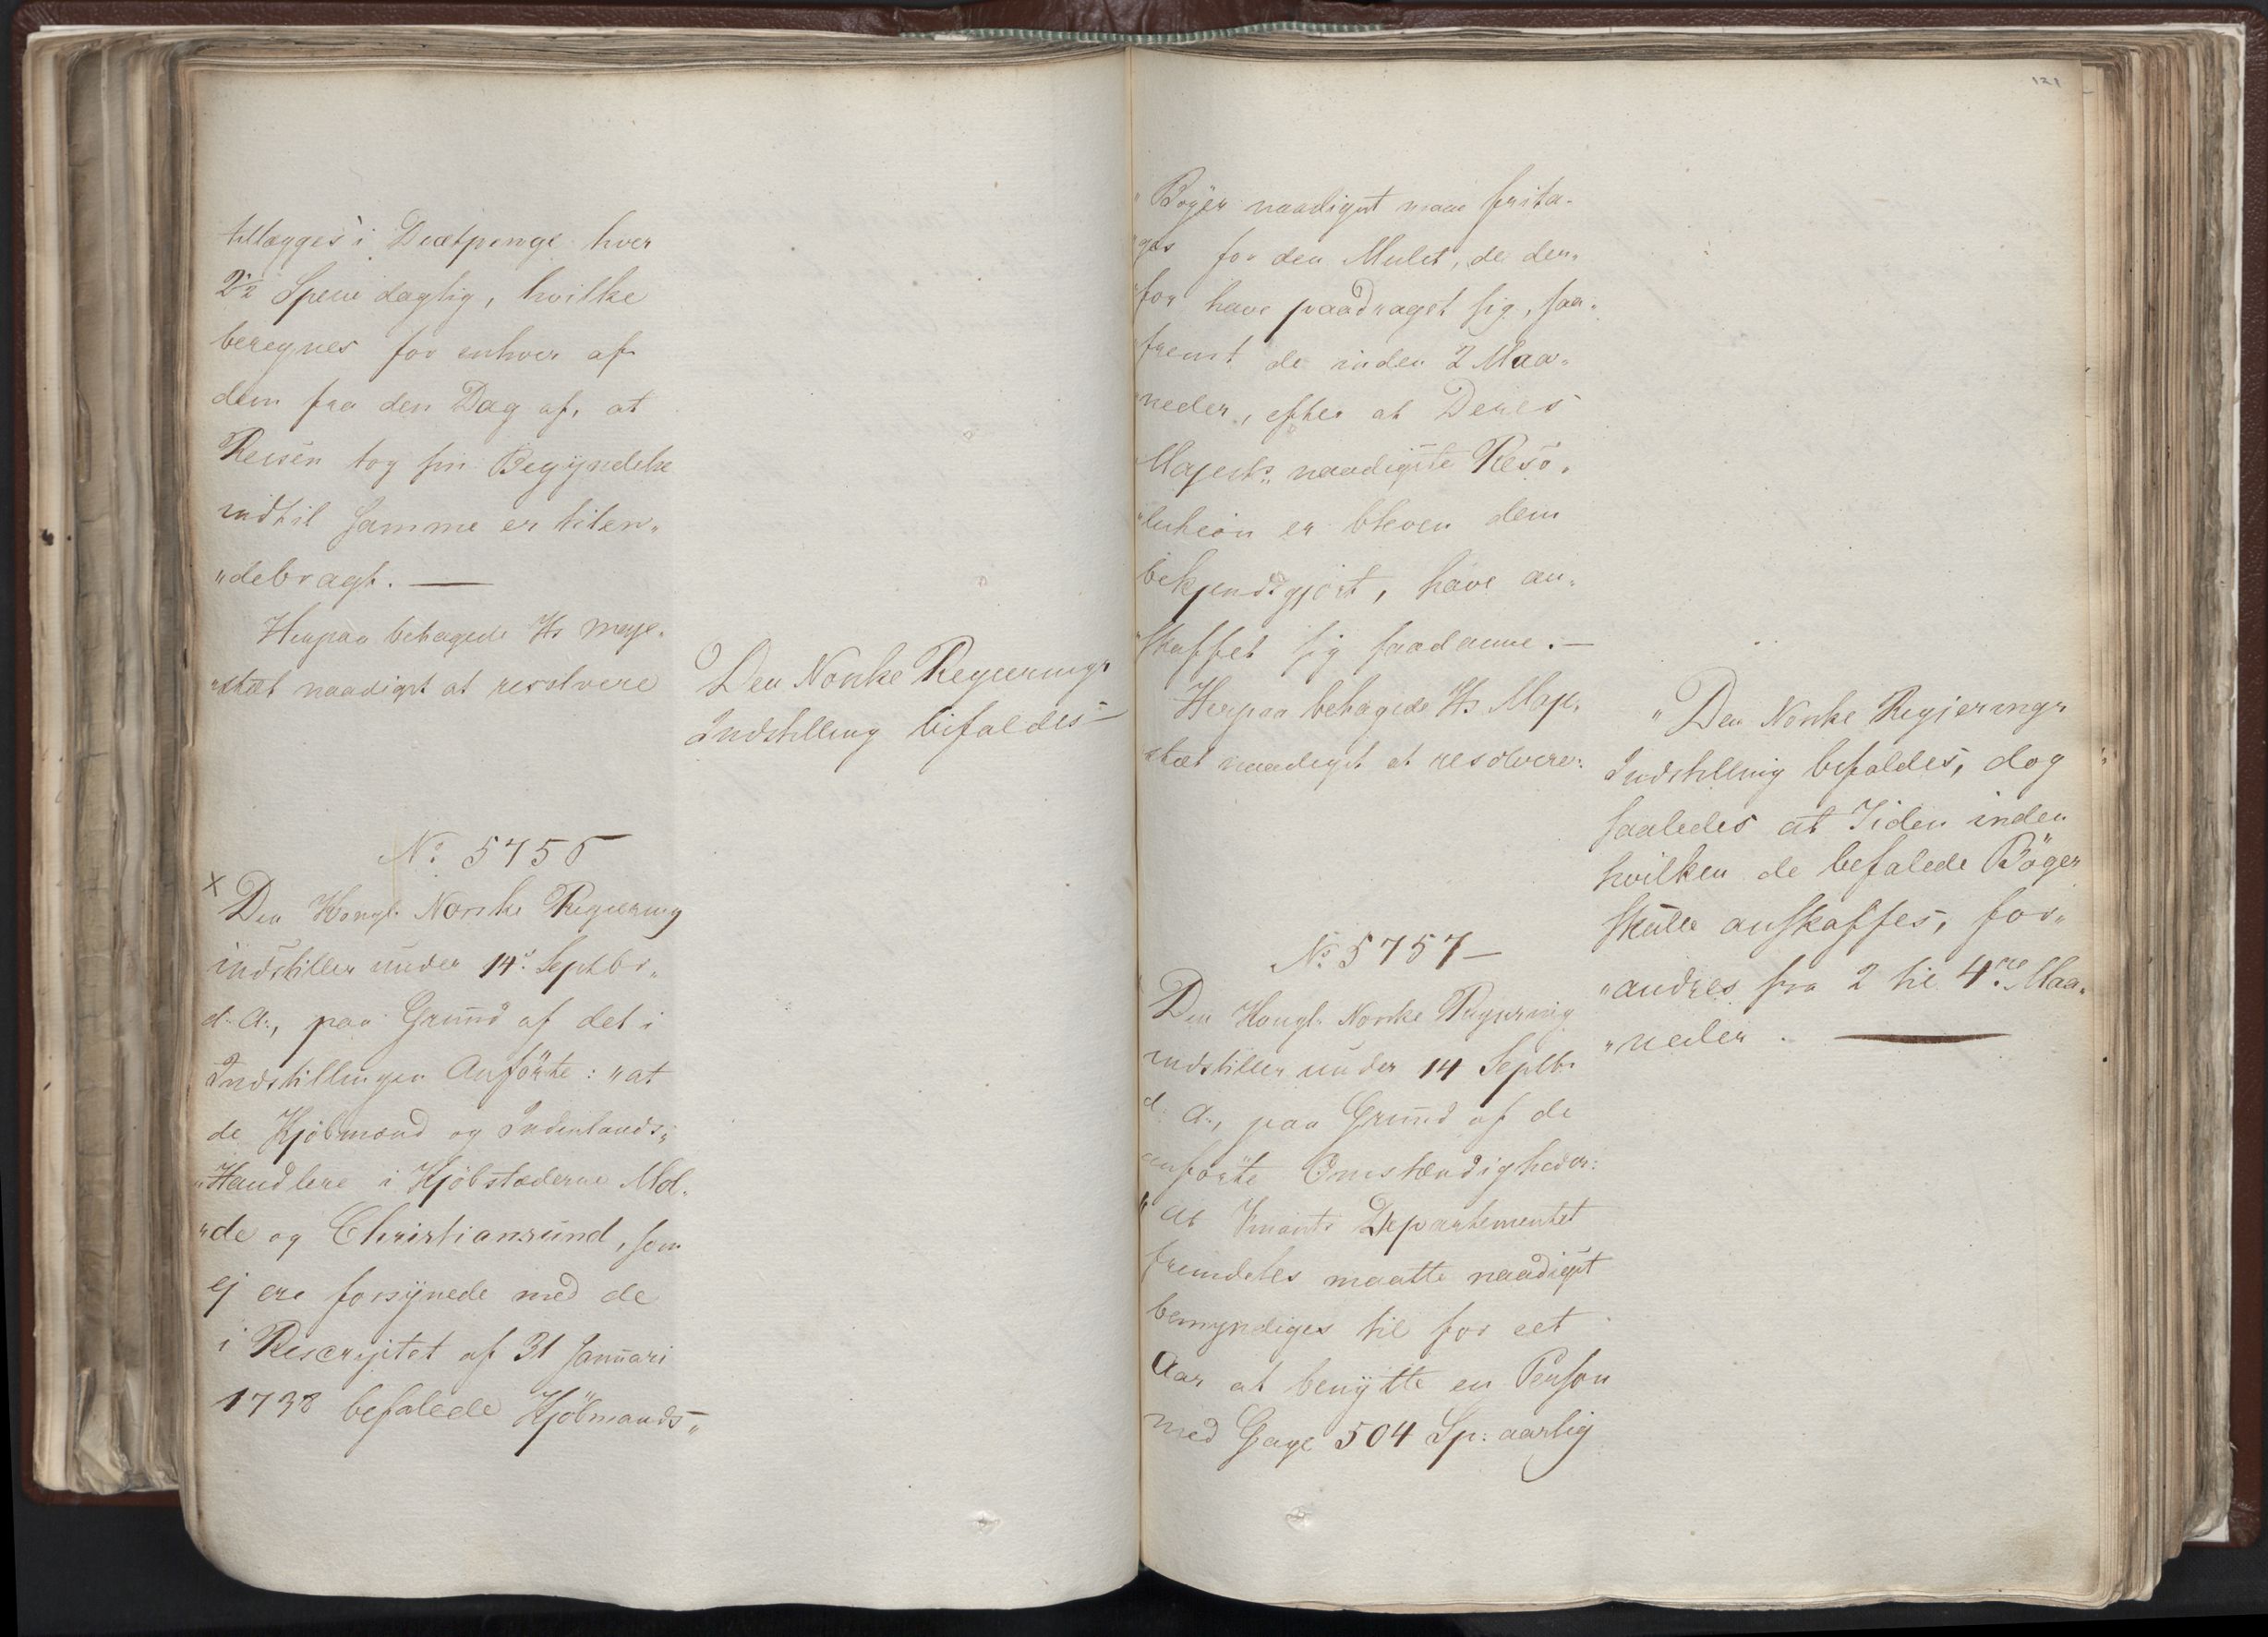 tillægges i Diætpenge hver
2½ Specie daglig, hvilke
beregnes for enhver af
dem fra den Dag af, at
Reisen tog sin Begyndelse
indtil samme er tilen„
„debragt. —
Herpaa behagede Hs Maje„
„stæt naadigst at resolvere
Den Norske Regjerings
Indstilling bifaldes —
No 5756
x Den Kongl. Norske Regjering
indstiller under 14de Septbr.
d. A., paa Grund af det i
Indstillingen Anförte: „at
de Kjöbmænd og Indenlands„
„Handlere i Kjöbstæderne Mol„
„de og Christiansund, som
ej ere forsynede med de
i Rescriptet af 31 Januari
1738 befalede Kjöbmands„
121
„Böger naadigst maa frita„
„ges for den Mulct, de der„
„for have paadraget sig, saa„
„fremt de inden 2 Maa„
„neder, efter at Deres
Majests. naadigste Reso„
„lution er bleven dem
bekjendtgjört, have an„
„skaffet sig saadanne. —
Herpaa behagede Hs Maje„
stæt naadigst at resolvere:
„Den Norske Regjerings
Indstilling bifaldes, dog
saaledes at Tiden inden
hvilken de befalede Böger
skulle anskaffes, for„
„andres fra 2 til 4re Maa„
„neder. —
No 5757 —
Den Kongl. Norske Regjering
indstiller under 14 Septbr
d. A., paa Grund af de
anförte Omstændigheder:
„at Finants Departementet
fremdeles maatte naadigst
bemyndiges til for eet
Aar at benytte en Person
med Gage 504 Sp: aarlig